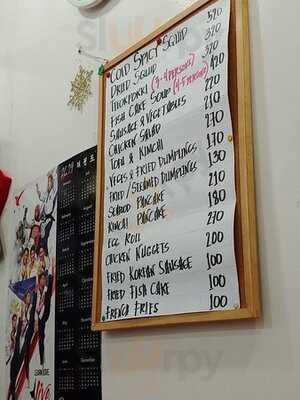 COLD SPICY SQUID 520
DRIED SQUID 320
TTEOKPOKKI (3-4 PERSONS) 320
FISH CAKE SOUP (4-5 PERSONS) 420
SAUSAGE & VEGETABLES 220
CHICKEN SALAD 210
TOFU & KIMCHI 270
VEGES & FRIED DUMPLINGS 170
FRIED / STEAMED DUMPLINGS 130
SEAFOOD PANCAKE 210
KIMCHI PANCAKE 180
EGG ROLL 270
CHICKEN NUGGETS 200
FRIED KOREAN SAUSAGE 100
FRIED FISH CAKE 100
FRENCH FRIES 100
live